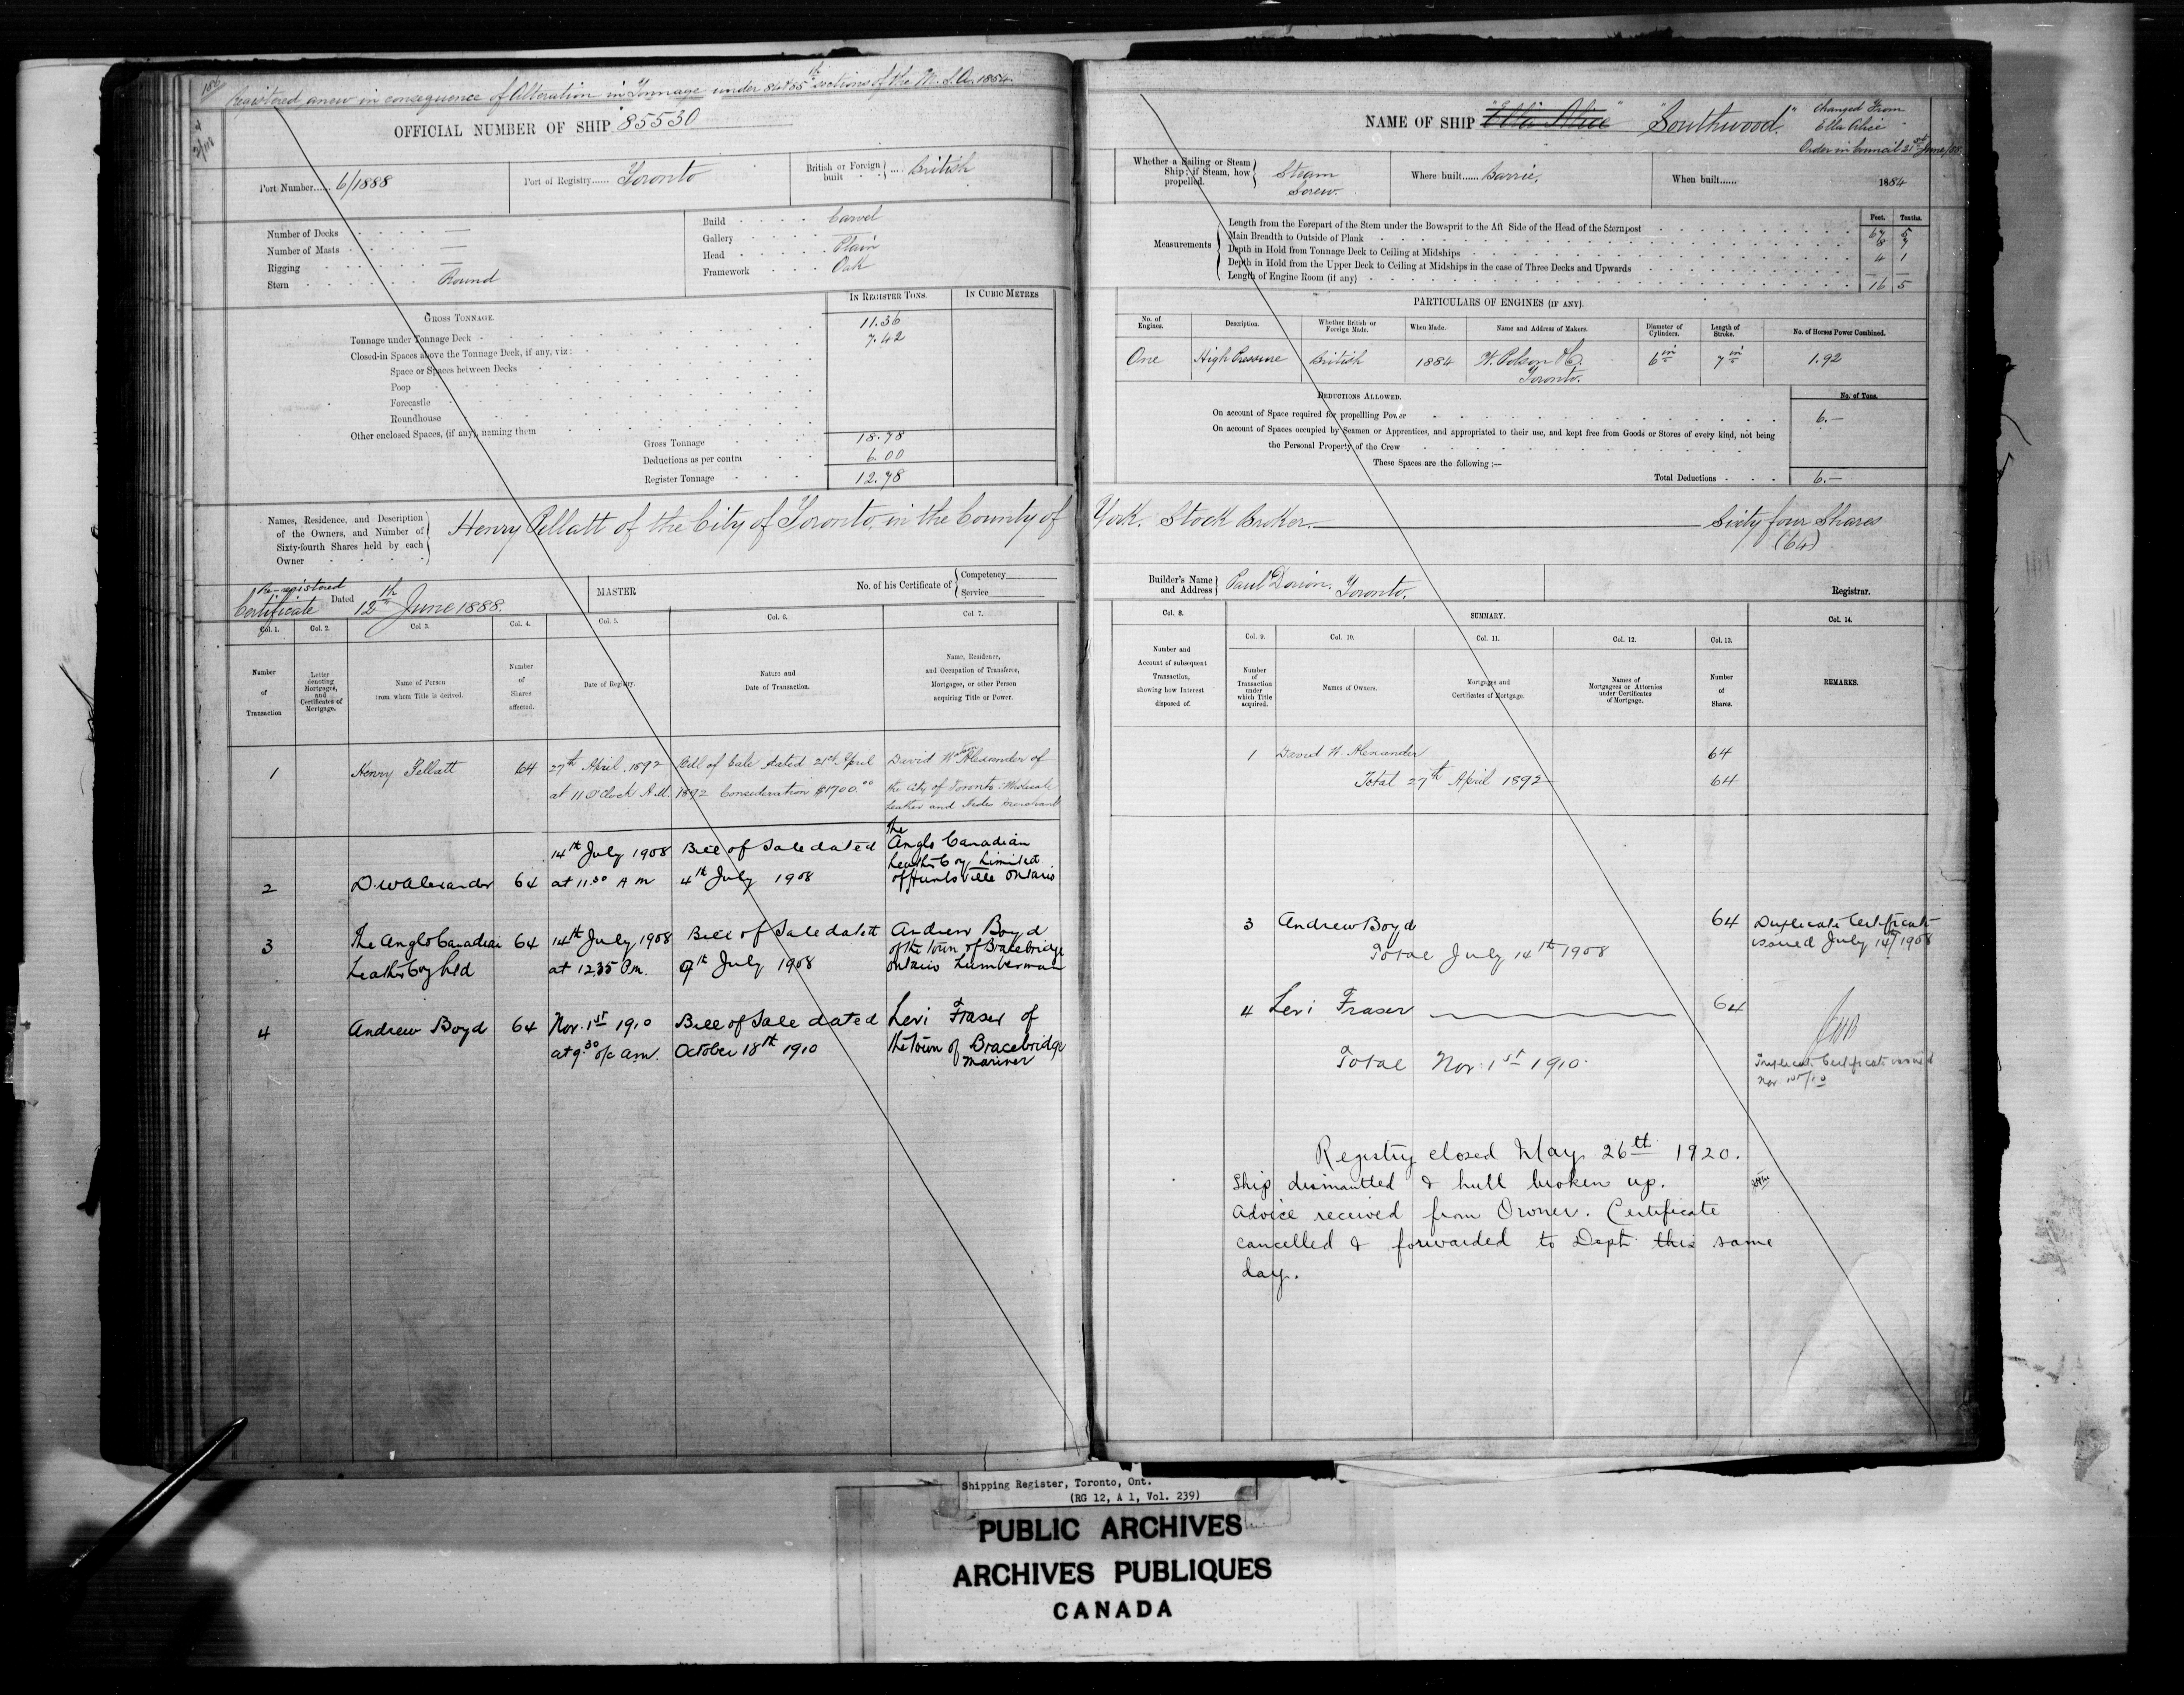 186
Registered anew in consequence of Alteration in Tonnage under 84 & 85th sections of the M.S.A. 1854.
OFFICIAL NUMBER OF SHIP 85530
Port Number...... 6/1888
Port of Registry...... Toronto
British or Foreign built .... British
Number of Decks —
Number of Masts —
Rigging —
Stern Round
Build Carvel
Gallery
Head Plain
Framework Oak
IN REGISTER TONS. IN CUBIC METRES
GROSS TONNAGE.
Tonnage under Tonnage Deck 11.36
Closed-in Spaces above the Tonnage Deck, if any, viz: 7.42
Space or Spaces between Decks
Poop
Forecastle
Roundhouse
Other enclosed Spaces, (if any), naming them
Gross Tonnage 18.78
Deductions as per contra 6.00
Register Tonnage 12.78
Names, Residence, and Description
of the Owners, and Number of
Sixty-fourth Shares held by each
Owner
Henry Pellatt of the City of Toronto, in the County of
Re-registered
Certificate Dated 12th June 1888.
MASTER
No. of his Certificate of Competency
Service
Col. 1. Col. 2. Col 3. Col. 4. Col. 5. Col. 6. Col 7.
Number of Transaction
Letter denoting Mortgages, and Certificates of Mortgage.
Name of Person from whom Title is derived.
Number of Shares affected.
Date of Registry.
Nature and Date of Transaction.
Name, Residence, and Occupation of Transferee, Mortgagee, or other Person acquiring Title or Power.
1 Henry Pellatt 64 27th April, 1892 Bill of Sale dated 21st April David W Alexander of
at 11 O'Clock A.M. 1892 Consideration $1700.00 the City of Toronto Wholesale
Leather and Hides Merchant
The
14th July 1908 Bill of Sale dated Anglo Canadian
Leather Coy Limited
2 D.W Alexander 64 at 11.30 A M 4th July 1908 of Huntsville Ontario
3 The Anglo Canadian 64 14th July 1908 Bill of Sale dated Andrew Boyd
of the town of Bracebridge
Leather Coy Ltd at 12.35 P.m. 9th July 1908 Ontario Lumberman
4 Andrew Boyd 64 Nov. 1st 1910 Bill of Sale dated Levi Fraser of
at 9.30 o/c a.m. October 18th 1910 the Town of Bracebridge
Mariner
NAME OF SHIP "Ella Alice" "Southwood" Changed From
Ella Alice
Order in Council 21st June/88
Whether a Sailing or Steam
Ship; if Steam, how
propelled.
Steam
Screw.
Where built...... Barrie.
When built...... 1884
Measurements
Feet. Tenths.
Length from the Forepart of the Stem under the Bowsprit to the Aft Side of the Head of the Sternpost 67 5
Main Breadth to Outside of Plank 8 7
Depth in Hold from Tonnage Deck to Ceiling at Midships 4 1
Depth in Hold from the Upper Deck to Ceiling at Midships in the case of Three Decks and Upwards —
Length of Engine Room (if any) 16 5
PARTICULARS OF ENGINES (IF ANY).
No. of Engines. Description. Whether British or Foreign Made. When Made. Name and Address of Makers. Diameter of Cylinders. Length of Stroke. No. of Horses Power Combined.
One High Pressure British 1884 W. Polson & Co 6 in 7 in 1.92
Toronto.
DEDUCTIONS ALLOWED. No. of Tons.
On account of Space required for propellling Power 6.—
On account of Spaces occupied by Seamen or Apprentices, and appropriated to their use, and kept free from Goods or Stores of every kind, not being
the Personal Property of the Crew
These Spaces are the following :—
Total Deductions 6.—
York. Stock Broker. Sixty four Shares
(64)
Builder's Name
and Address
Paul Dorion. Toronto.
Registrar.
Col. 8. SUMMARY. Col. 14.
Col. 9. Col. 10. Col. 11. Col. 12. Col. 13.
Number and Account of subsequent Transaction, showing how Interest disposed of.
Number of Transaction under which Title acquired.
Names of Owners.
Mortgages and Certificates of Mortgage.
Names of Mortgagees or Attornies under Certificates of Mortgage.
Number of Shares.
REMARKS.
1 David W. Alexander 64
Total 27th April 1892 64
3 Andrew Boyd 64 Duplicate Certificate
issued July 14th/1908
Total July 14th 1908
4 Levi Fraser 64
Total Nov. 1st 1910
Triplicate Certificate issued
Nov 10th/10
Registry closed May 26th 1920.
Ship dismantled & hull broken up.
Advice received from Owner. Certificate
cancelled & forwarded to Dept. this same
day.
Shipping Register, Toronto, Ont.
(RG 12, A 1, Vol. 239)
PUBLIC ARCHIVES
ARCHIVES PUBLIQUES
CANADA